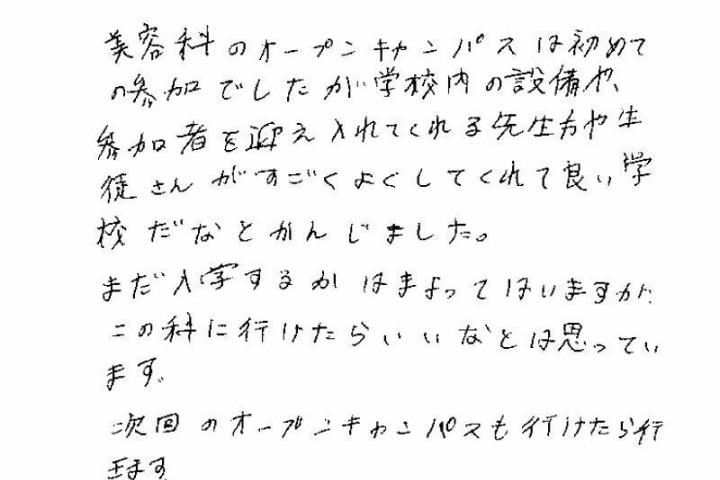 美容科のオープンキャンパスは初めて
の参加でしたが学校内の設備や、
参加者を迎え入れてくれる先生方や生
徒さんがすごくよくしてくれて良い学
校だなとかんじました。
まだ入学するかはまよってはいますが、
この科に行けたらいいなとは思ってい
ます。
次回のオープンキャンパスも行けたら行
きます